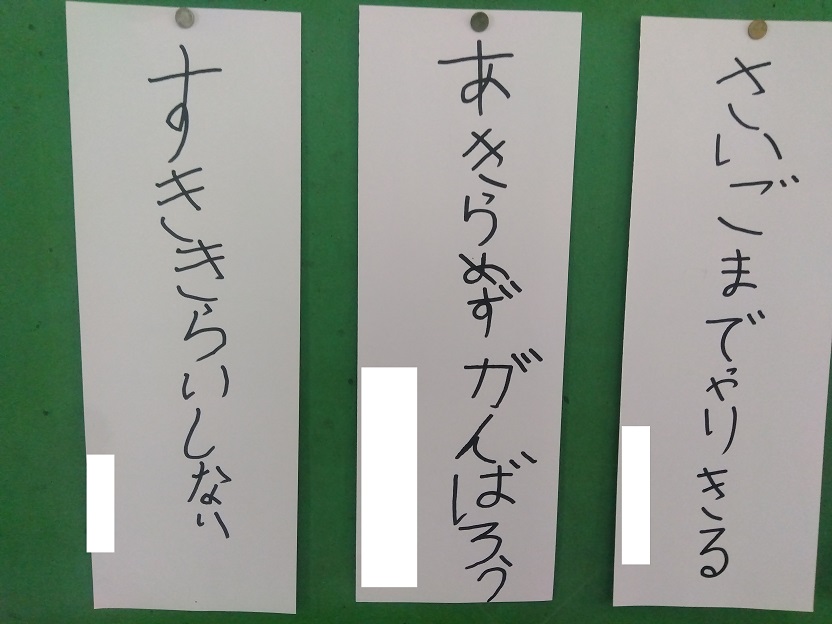 さいごまでやりきる
あきらめずがんばろう
すききらいしない